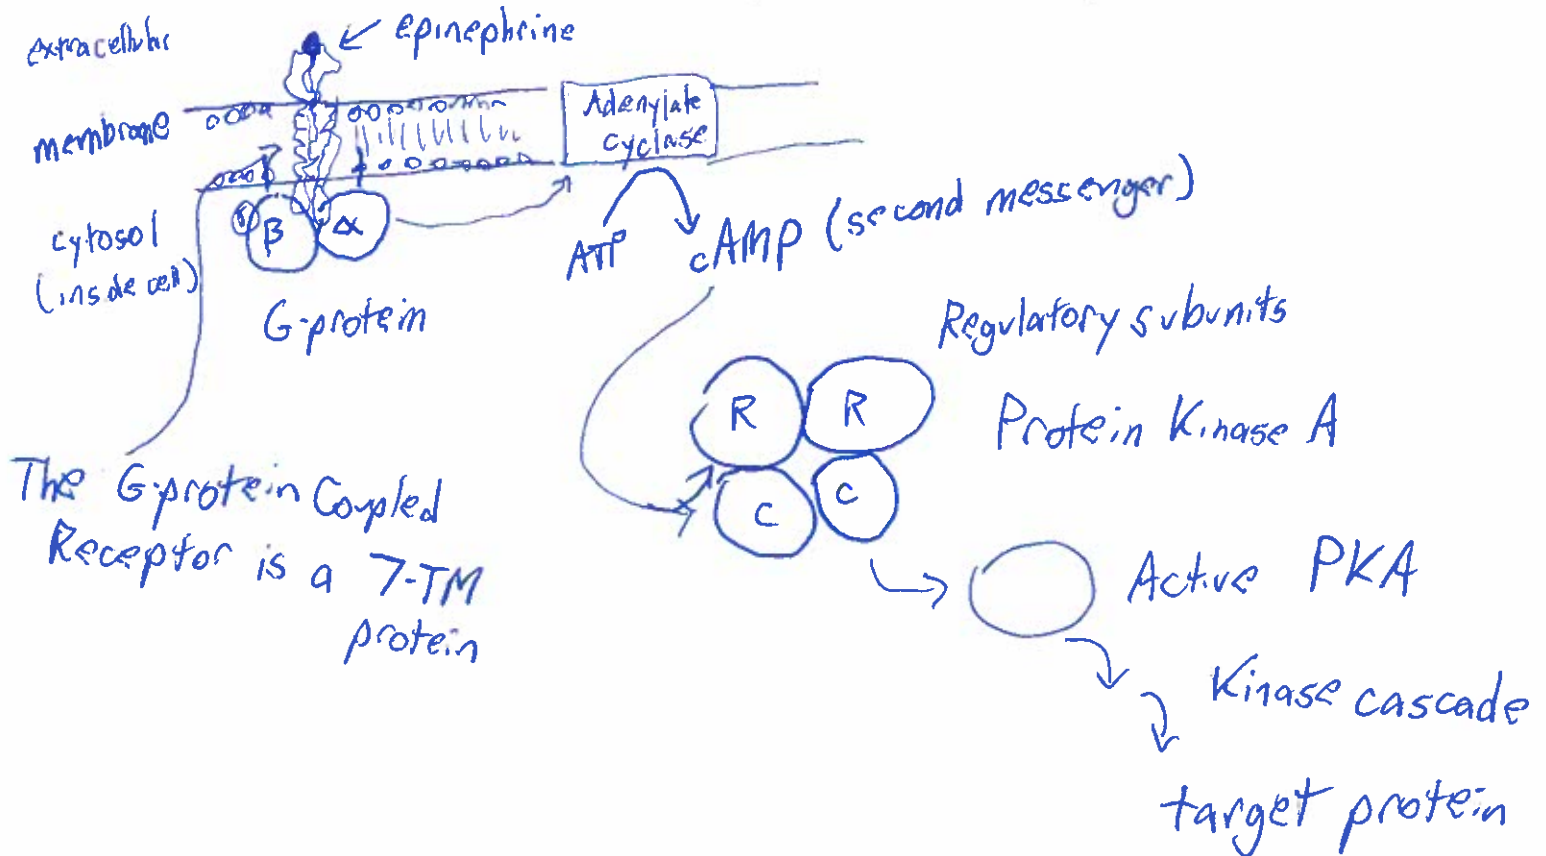 extracellular
epinephrine
membrane
Adenylate
cyclase
cytosol
(inside cell)
γ
β
α
G-protein
ATP
cAMP (second messenger)
Regulatory subunits
R
R
Protein Kinase A
C
C
The G-protein Coupled
Receptor is a 7-TM
protein
Active PKA
Kinase cascade
target protein